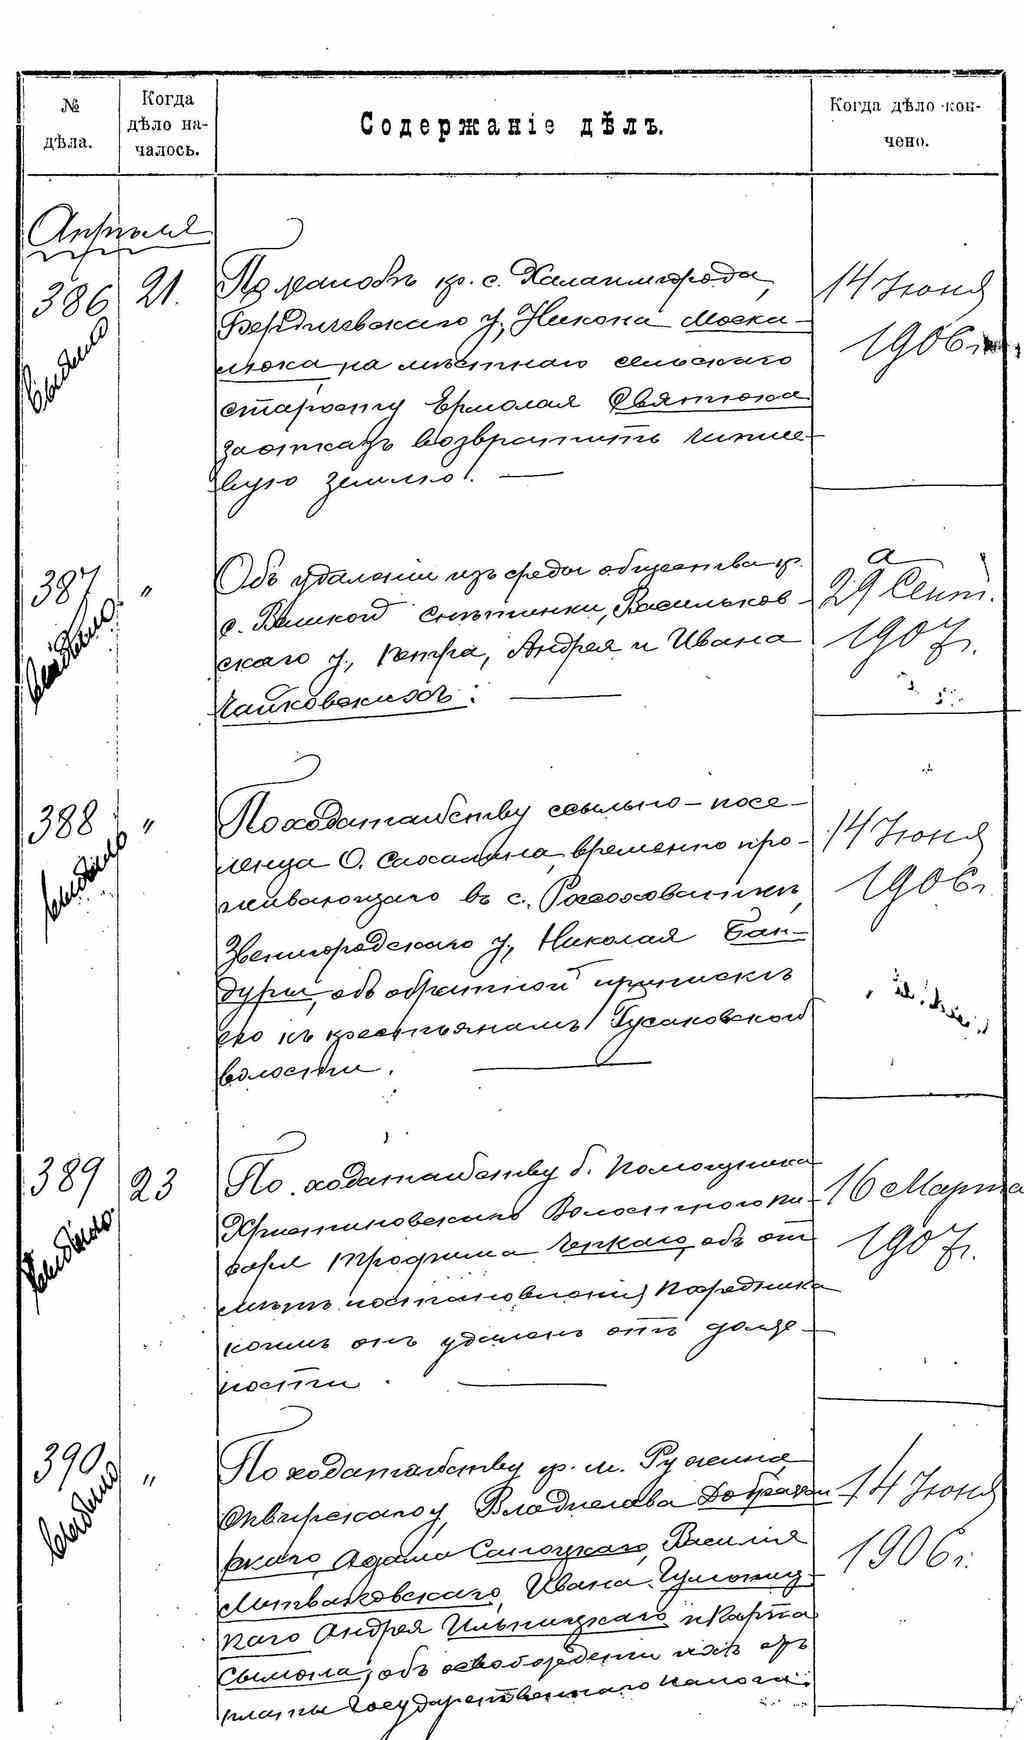 № дѣла.
Когда дѣло началось.
Содержаніе дѣлъ.
Когда дѣло кончено.
Апрѣля
386
21.
По жалобѣ кр. с. Халаимгорода,
Бердичевскаго у., Никона Моска-
люка на мѣстнаго сельскаго
старосту Ермолая Святюка
за отказъ возвратить чинше-
вую землю.
14 Іюня
1906 г.
387
"
Объ удаленіи изъ среды общества кр.
с. Великой Снѣтинки, Васильков-
скаго у., Петра, Андрея и Ивана
Чайковскихъ.
29 Сент.
1907 г.
388
"
По ходатайству ссыльно-посе-
ленца О. Сахалина, временно про-
живающаго въ с.
Звенигородскаго у., Николая Бан-
дуры, объ обратной припискѣ
его къ крестьянамъ Гусаковской
волости.
14 Іюня
1906 г.
389
23
По ходатайству б. помощника
Христиновскаго Волостного пи-
саря Трофима Чернаго, объ от-
мѣнѣ постановленія Посредника
коимъ онъ удаленъ отъ долж-
ности.
16 Марта
1907 г.
390
"
По ходатайству кр. м. Ружина,
Сквирскаго у. Владислава
Адама Сапоцкаго, Василія
Ивана
Андрея Ильницкаго и Карпа
объ освобожденіи ихъ отъ
платы Государственнаго налога.
14 Іюня
1906 г.